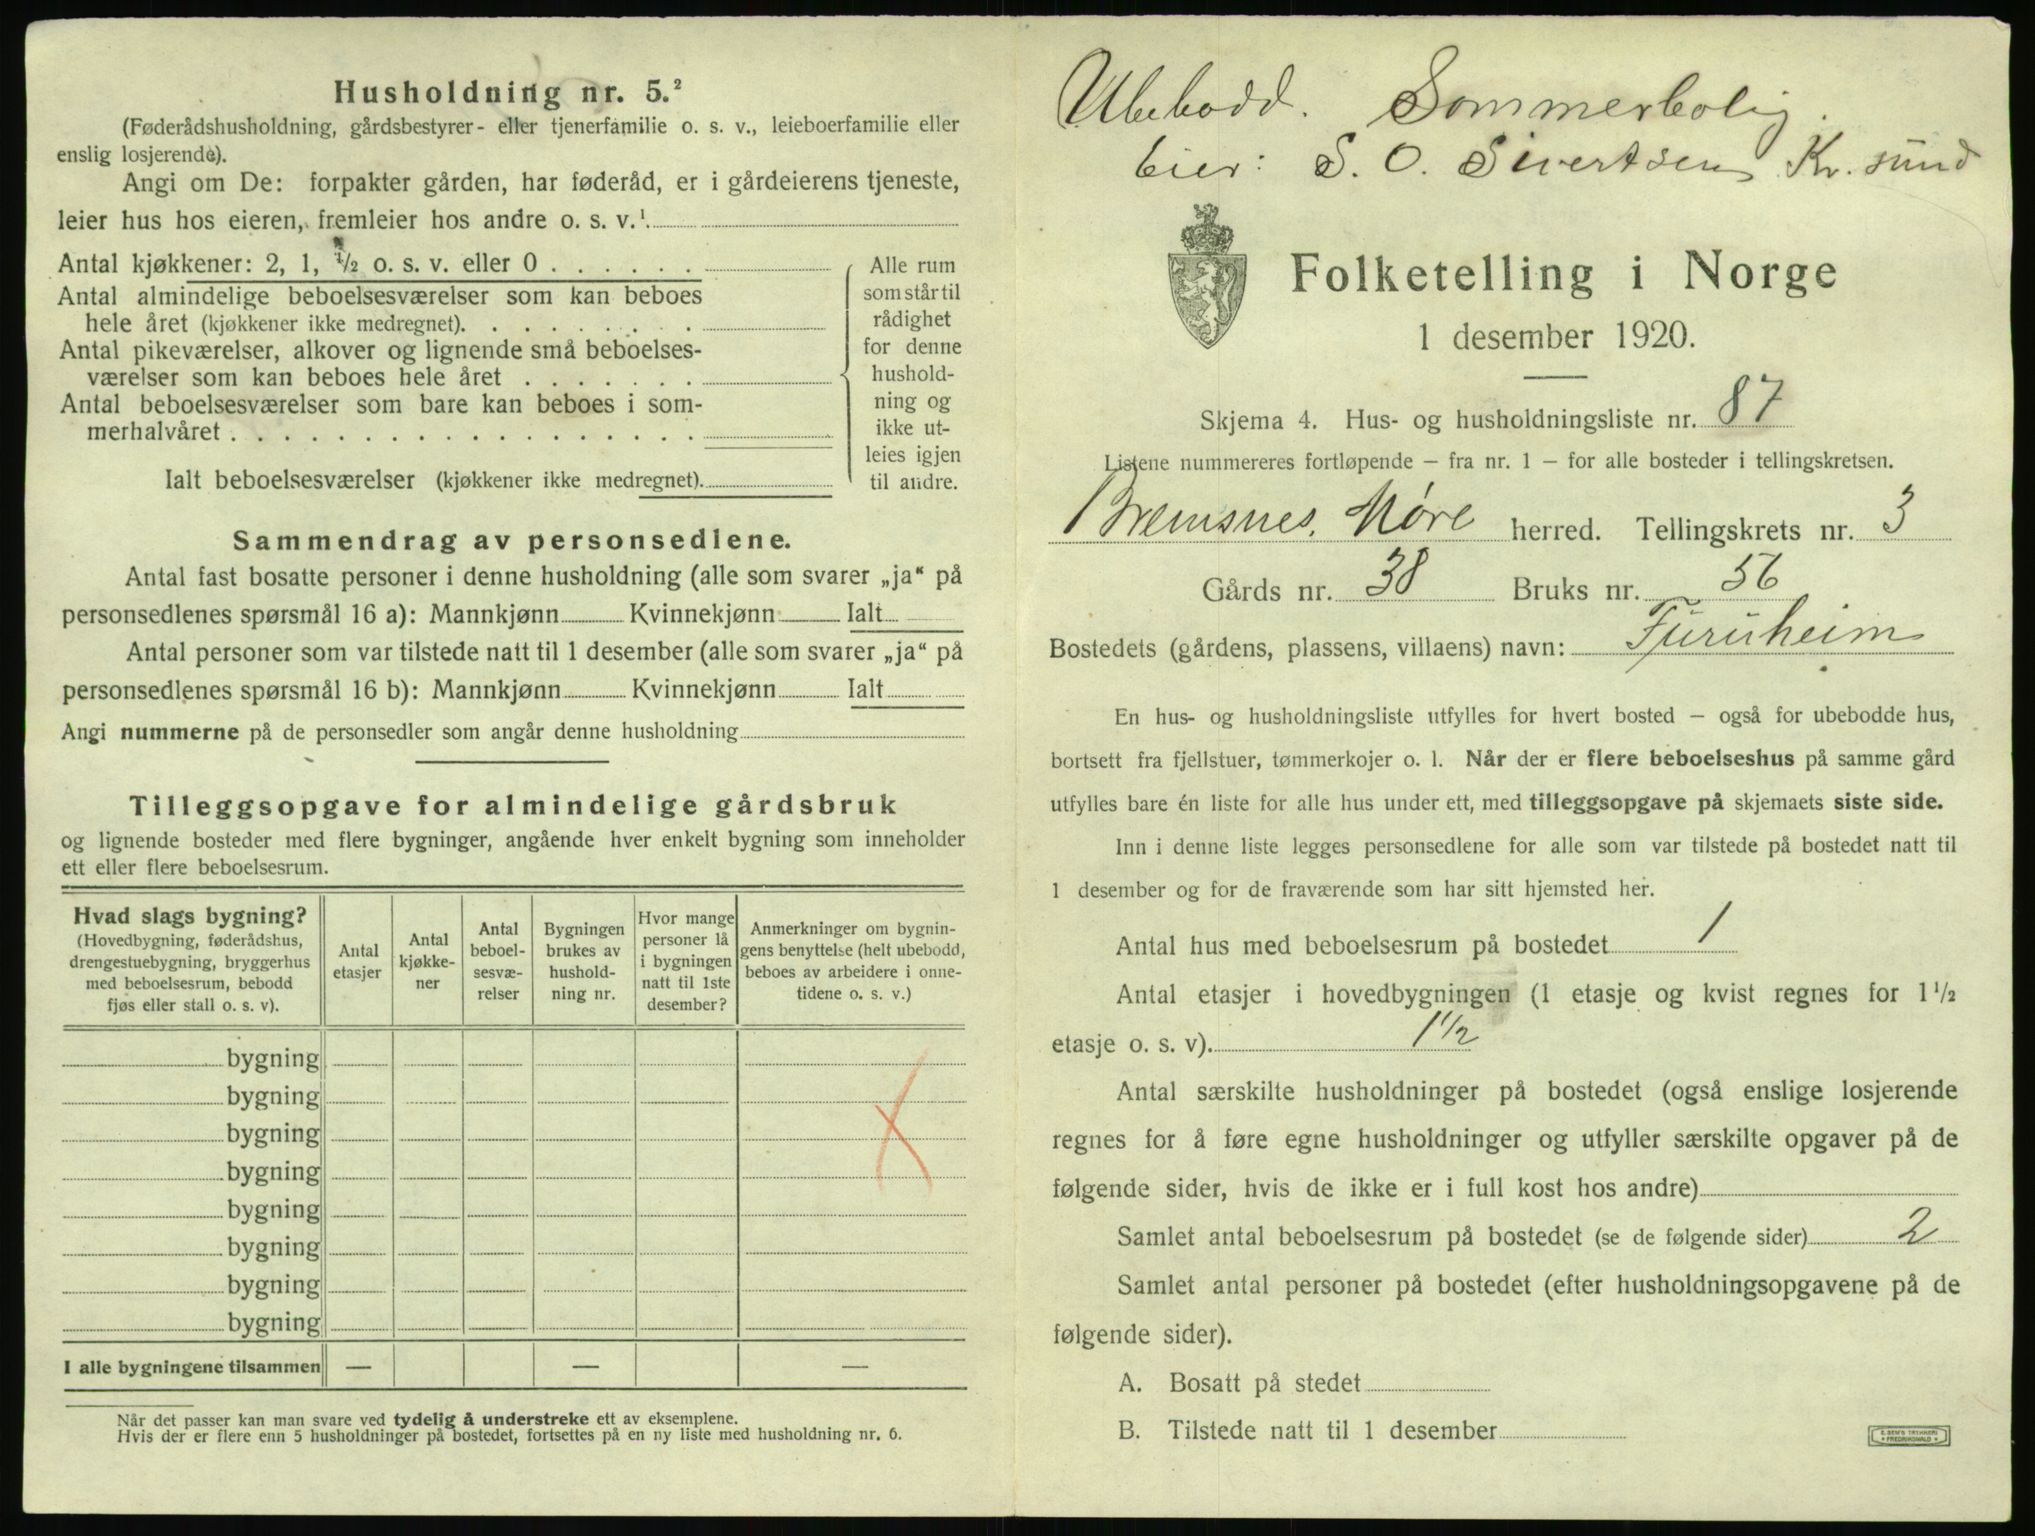 Husholdning nr. 5.²
(Føderådshusholdning, gårdsbestyrer- eller tjenerfamilie o. s. v., leieboerfamilie eller
enslig losjerende).
Angi om De: forpakter gården, har føderåd, er i gårdeierens tjeneste,
leier hus hos eieren, fremleier hos andre o. s. v.¹
Antal kjøkkener: 2, 1, ½ o. s. v. eller 0 . . . . . .
Antal almindelige beboelsesværelser som kan beboes
hele året (kjøkkener ikke medregnet). . . . . . . . .
Antal pikeværelser, alkover og lignende små beboelses-
værelser som kan beboes hele året . . . . . . .
Antal beboelsesværelser som bare kan beboes i som-
merhalvåret . . . . . . . . . . . . . . . . .
Ialt beboelsesværelser (kjøkkener ikke medregnet).
Alle rum
som står til
rådighet
for denne
hushold-
ning og
ikke ut-
leies igjen
til andre.
Sammendrag av personsedlene.
Antal fast bosatte personer i denne husholdning (alle som svarer „ja“ på
personsedlenes spørsmål 16 a): Mannkjønn Kvinnekjønn Ialt
Antal personer som var tilstede natt til 1 desember (alle som svarer „ja“ på
personsedlenes spørsmål 16 b): Mannkjønn Kvinnekjønn Ialt
Angi nummerne på de personsedler som angår denne husholdning
Tilleggsopgave for almindelige gårdsbruk
og lignende bosteder med flere bygninger, angående hver enkelt bygning som inneholder
ett eller flere beboelsesrum.
Hvad slags bygning?
(Hovedbygning, føderådshus,
drengestuebygning, bryggerhus
med beboelsesrum, bebodd
fjøs eller stall o. s. v).
Antal
etasjer
Antal
kjøkke-
ner
Antal
beboel-
sesvæ-
relser
Bygningen
brukes av
hushold-
ning nr.
Hvor mange
personer lå
i bygningen
natt til 1ste
desember?
Anmerkninger om bygnin-
gens benyttelse (helt ubebodd,
beboes av arbeidere i onne-
tidene o. s. v.)
bygning
bygning
bygning
bygning
bygning
bygning
bygning
bygning
I alle bygningene tilsammen — — —
Når det passer kan man svare ved tydelig å understreke ett av eksemplene.
Hvis der er flere enn 5 husholdninger på bostedet, fortsettes på en ny liste med husholdning nr. 6.
Ubebodd. Sommerbolig.
Eier: S. O. Sivertsen Kr. sund
Folketelling i Norge
1 desember 1920.
Skjema 4. Hus- og husholdningsliste nr. 87
Listene nummereres fortløpende – fra nr. 1 – for alle bosteder i tellingskretsen.
Bremsnes, Møre herred. Tellingskrets nr. 3
Gårds nr. 38 Bruks nr. 56
Bostedets (gårdens, plassens, villaens) navn: Furuheim
En hus- og husholdningsliste utfylles for hvert bosted – også for ubebodde hus,
bortsett fra fjellstuer, tømmerkojer o. l. Når der er flere beboelseshus på samme gård
utfylles bare én liste for alle hus under ett, med tilleggsopgave på skjemaets siste side.
Inn i denne liste legges personsedlene for alle som var tilstede på bostedet natt til
1 desember og for de fraværende som har sitt hjemsted her.
Antal hus med beboelsesrum på bostedet 1
Antal etasjer i hovedbygningen (1 etasje og kvist regnes for 1½
etasje o. s. v). 1½
Antal særskilte husholdninger på bostedet (også enslige losjerende
regnes for å føre egne husholdninger og utfyller særskilte opgaver på de
følgende sider, hvis de ikke er i full kost hos andre)
Samlet antal beboelsesrum på bostedet (se de følgende sider) 2
Samlet antal personer på bostedet (efter husholdningsopgavene på de
følgende sider).
A. Bosatt på stedet
B. Tilstede natt til 1 desember